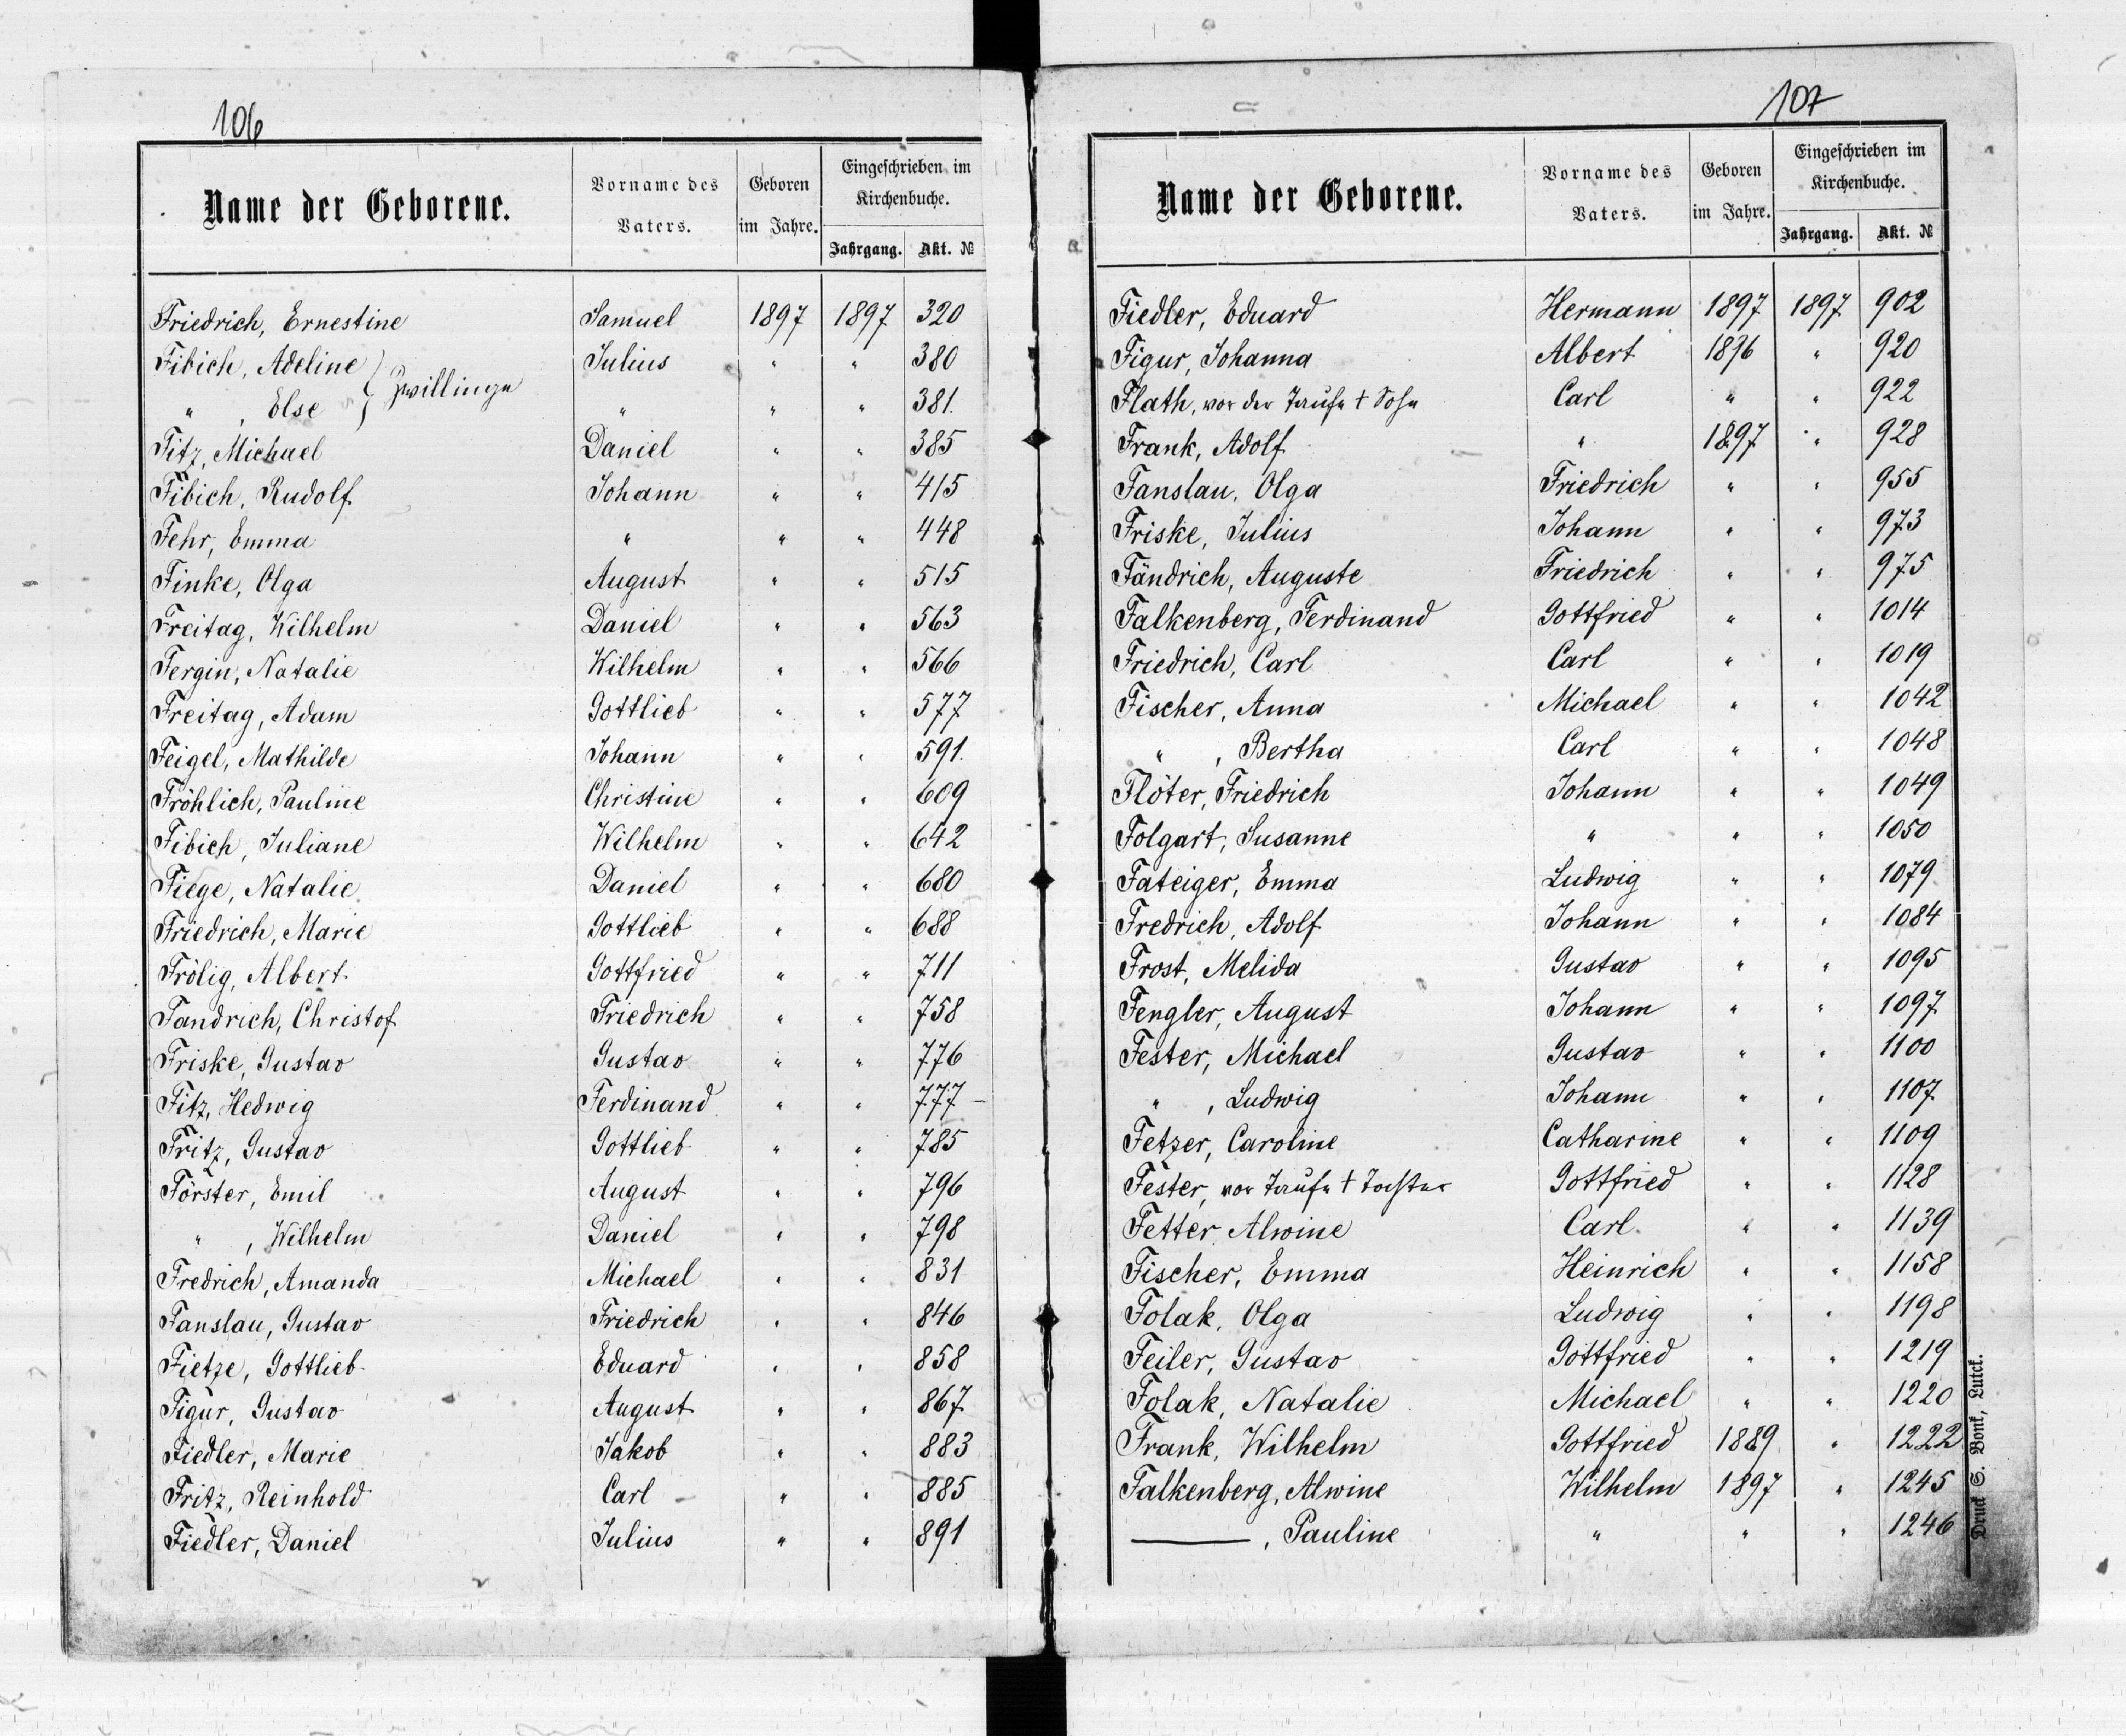 106
Name der Geborene. Vorname des Vaters. Geboren im Jahre. Eingeschrieben im Kirchenbuche. Jahrgang. Akt. №
Friedrich, Ernestine Samuel 1897 1897 320
Fibich, Adeline } Zwillinge Julius " " 380
" , Else " " " 381.
Fitz, Michael Daniel " " 385
Fibich, Rudolf Johann " " 415
Fehr, Emma " " " 448
Finke, Olga August " " 515
Freitag, Wilhelm Daniel " " 563
Fergin, Natalie Wilhelm " " 566
Freitag, Adam Gottlieb " " 577
Feigel, Mathilde Johann " " 591.
Fröhlich, Pauline Christine " " 609
Fibich, Juliane Wilhelm " " 642
Fiege, Natalie Daniel " " 680
Friedrich, Marie Gottlieb " " 688
Frölig, Albert Gottfried " " 711
Fandrich, Christof Friedrich " " 758
Friske, Gustav Gustav " " 776
Fitz, Hedwig Ferdinand " " 777
Fritz, Gustav Gottlieb " " 785
Förster, Emil August " " 796
" , Wilhelm Daniel " " 798
Fredrich, Amanda Michael " " 831
Fanslau, Gustav Friedrich " " 846
Fietze, Gottlieb Eduard " " 858
Figur, Gustav August " " 867
Fiedler, Marie Jakob " " 883
Fritz, Reinhold Carl " " 885
Fiedler, Daniel Julius " " 891
107
Name der Geborene. Vorname des Vaters. Geboren im Jahre. Eingeschrieben im Kirchenbuche. Jahrgang. Akt. №
Fiedler, Eduard Hermann 1897 1897 902
Figur, Johanna Albert 1896 " 920
Flath, vor der Taufe † Sohn Carl " " 922
Frank, Adolf " 1897 " 928
Fanslau, Olga Friedrich " " 955
Friske, Julius Johann " " 973
Fändrich, Auguste Friedrich " " 975
Falkenberg, Ferdinand Gottfried " " 1014
Friedrich, Carl Carl " " 1019
Fischer, Anna Michael " " 1042
" , Bertha Carl " " 1048
Flöter, Friedrich Johann " " 1049
Folgart, Susanne " " " 1050
Fateiger, Emma Ludwig " " 1079
Fredrich, Adolf Johann " " 1084
Frost, Melida Gustav " " 1095
Fengler, August Johann " " 1097
Fester, Michael Gustav " " 1100
" , Ludwig Johann " " 1107
Fetzer, Caroline Catharine " " 1109
Fester, vor Taufe † Tochter Gottfried " " 1128
Fetter Alwine Carl " " 1139
Fischer, Emma Heinrich " " 1158
Folak, Olga Ludwig " " 1198
Feiler, Gustav Gottfried " " 1219
Folak, Natalie Michael " " 1220
Frank, Wilhelm Gottfried 1889 " 1222
Falkenberg, Alwine Wilhelm 1897 " 1245
——— , Pauline " " " 1246
Druck S. Bonk, Luck.